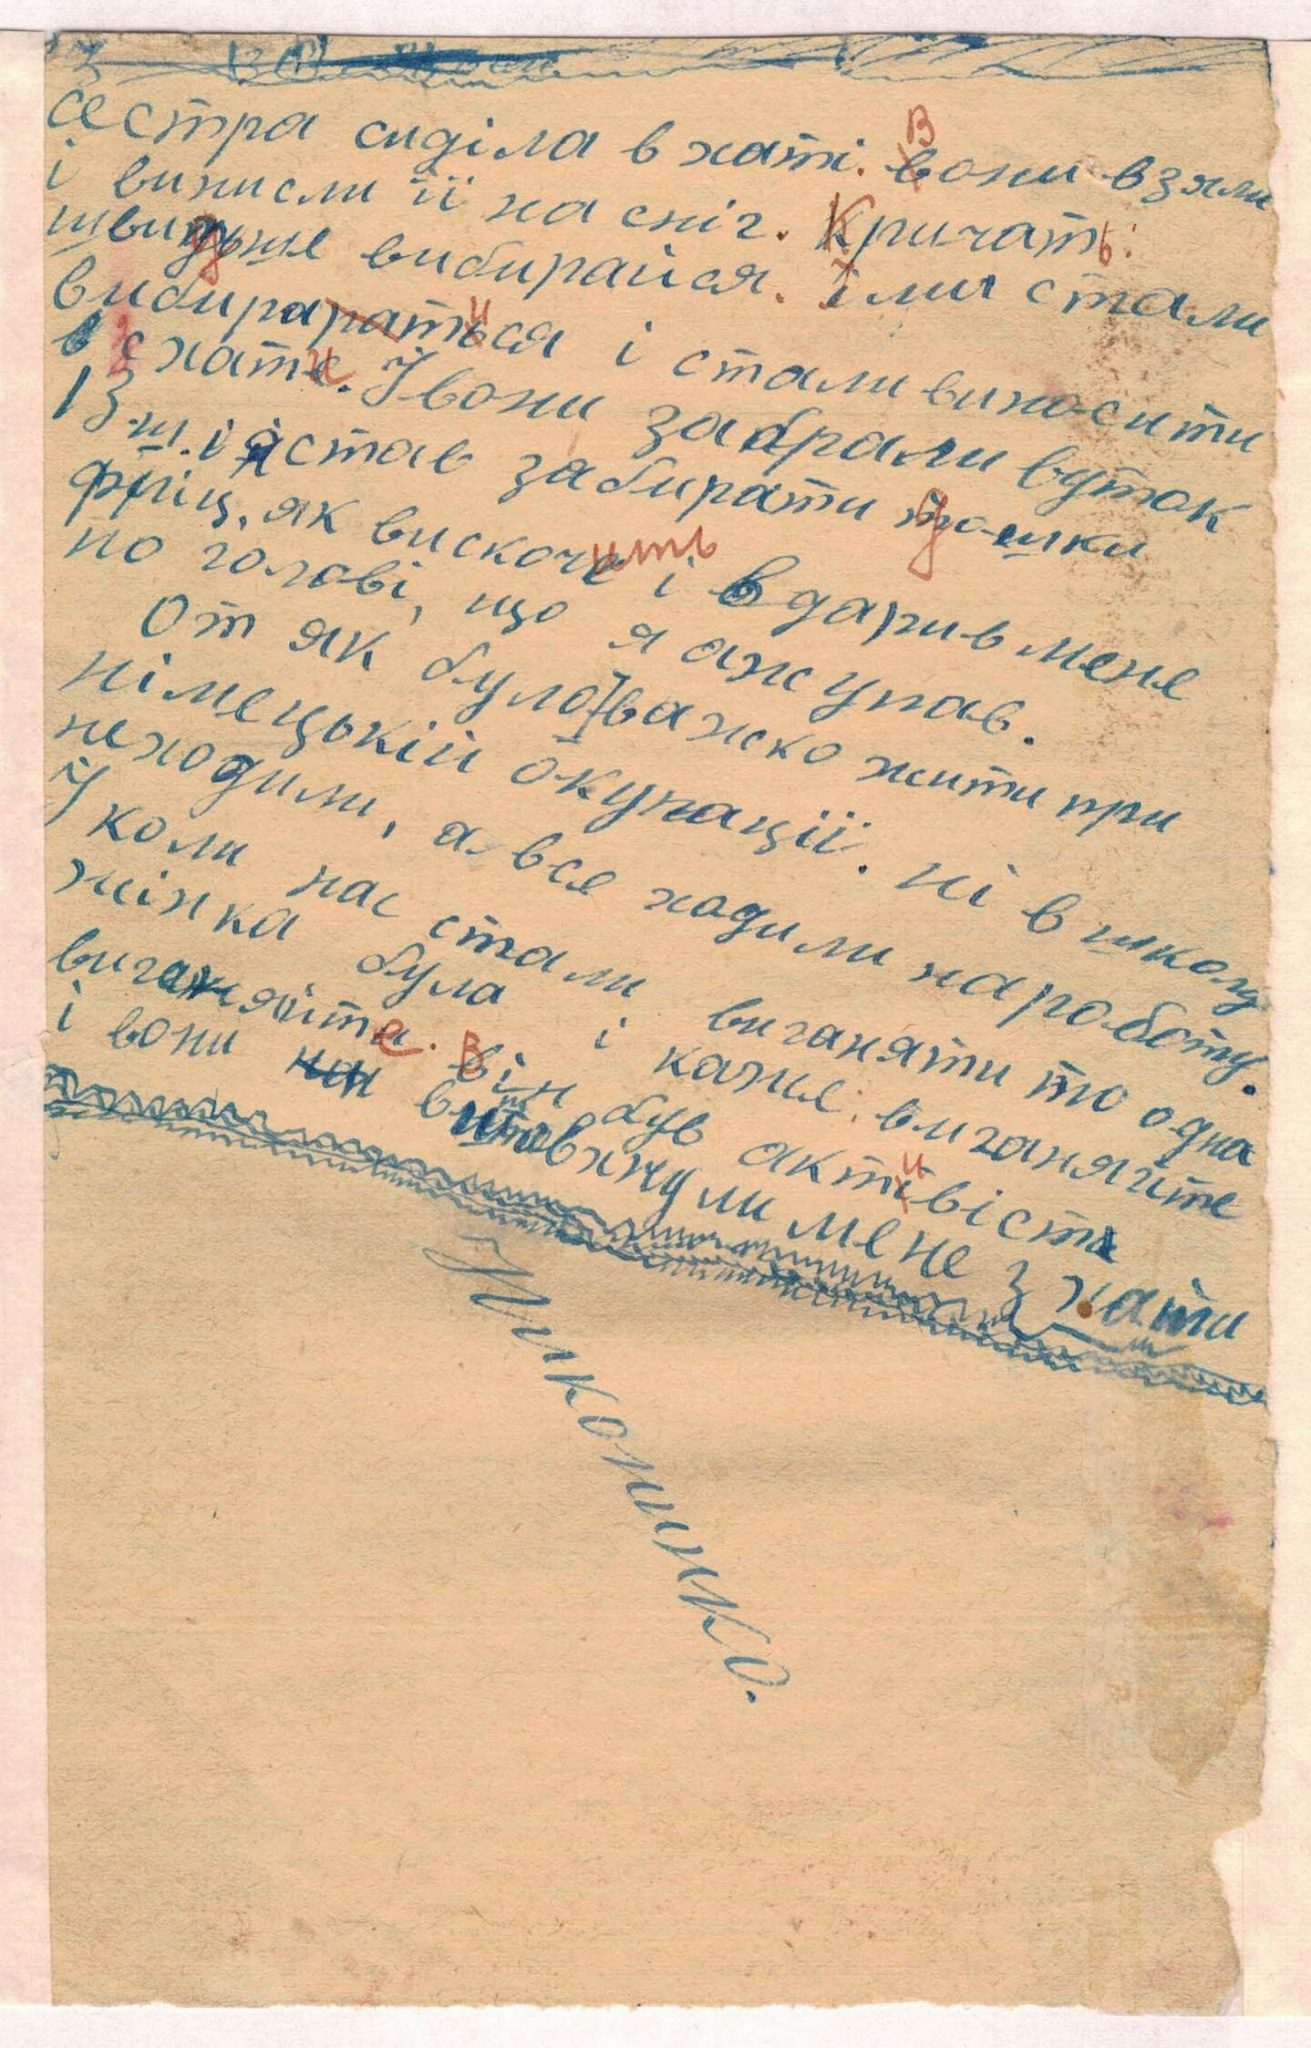 сестра сиділа в хаті. Вони взяли
і винисли її на сніг. Кричать:
швидше вибирайся. І ми стали
вибиратися і стали виносити
з хати. І вони забрали вуток
13 ш. і я став забирати дошки
фріц, як вискочить і вдарив мене
по голові, що я аж упав.
От як було важко жити при
німецькій окупації. Ні в школу
неходили, а все ходили на роботу.
І коли нас стали виганяти то одна
жінка була і каже: виганяйте
виганяйте. Він був активіст
і вони виштовхнули мене з хати
Никоненко.